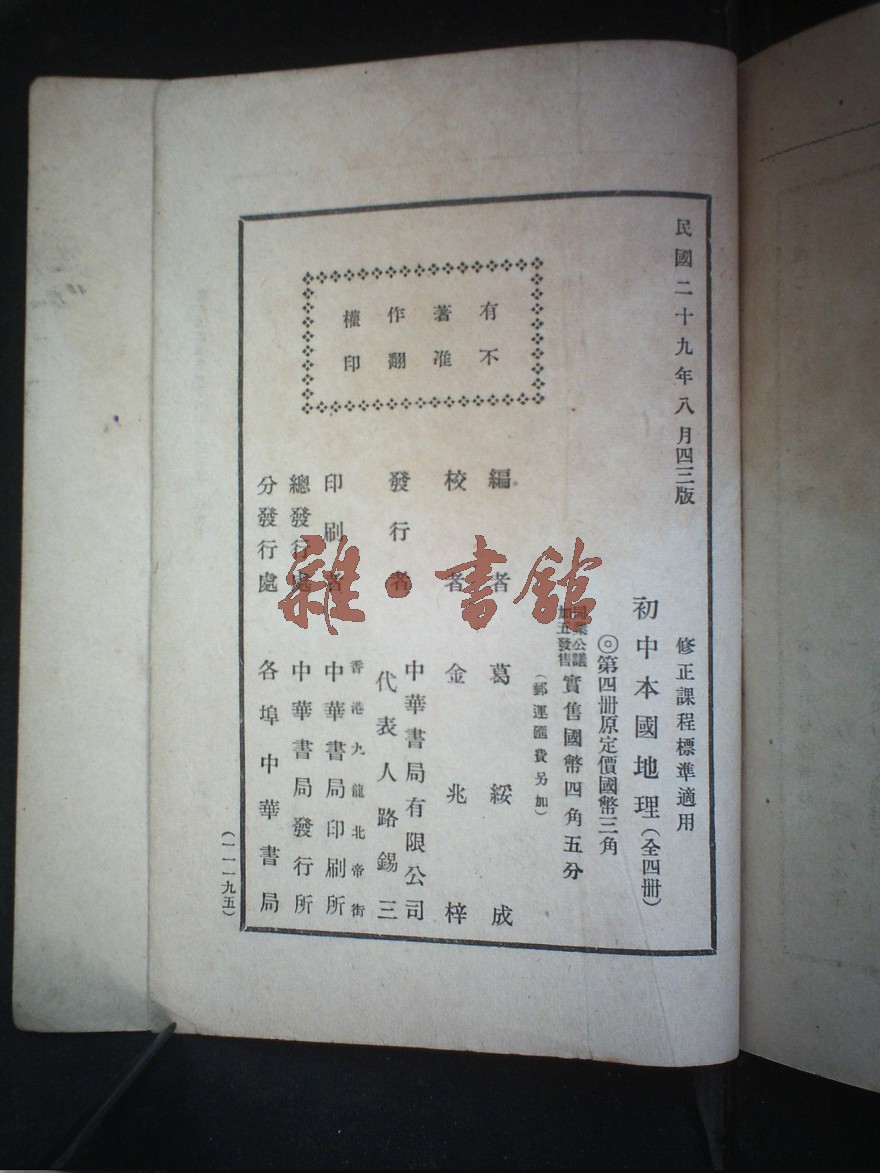 民國二十九年八月四三版
修正課程標準適用
初中本國地理(全四册)
◎第四册原定價國幣三角
同業公議
加五發售
實售國幣四角五分
(郵運匯費另加)
有著作權
不准翻印
編者 葛綏成
校者 金兆梓
發行者 中華書局有限公司
代表人路錫三
香港九龍北帝街
印刷者 中華書局印刷所
總發行處 中華書局發行所
分發行處 各埠中華書局
(一一一九五)
雜·書館